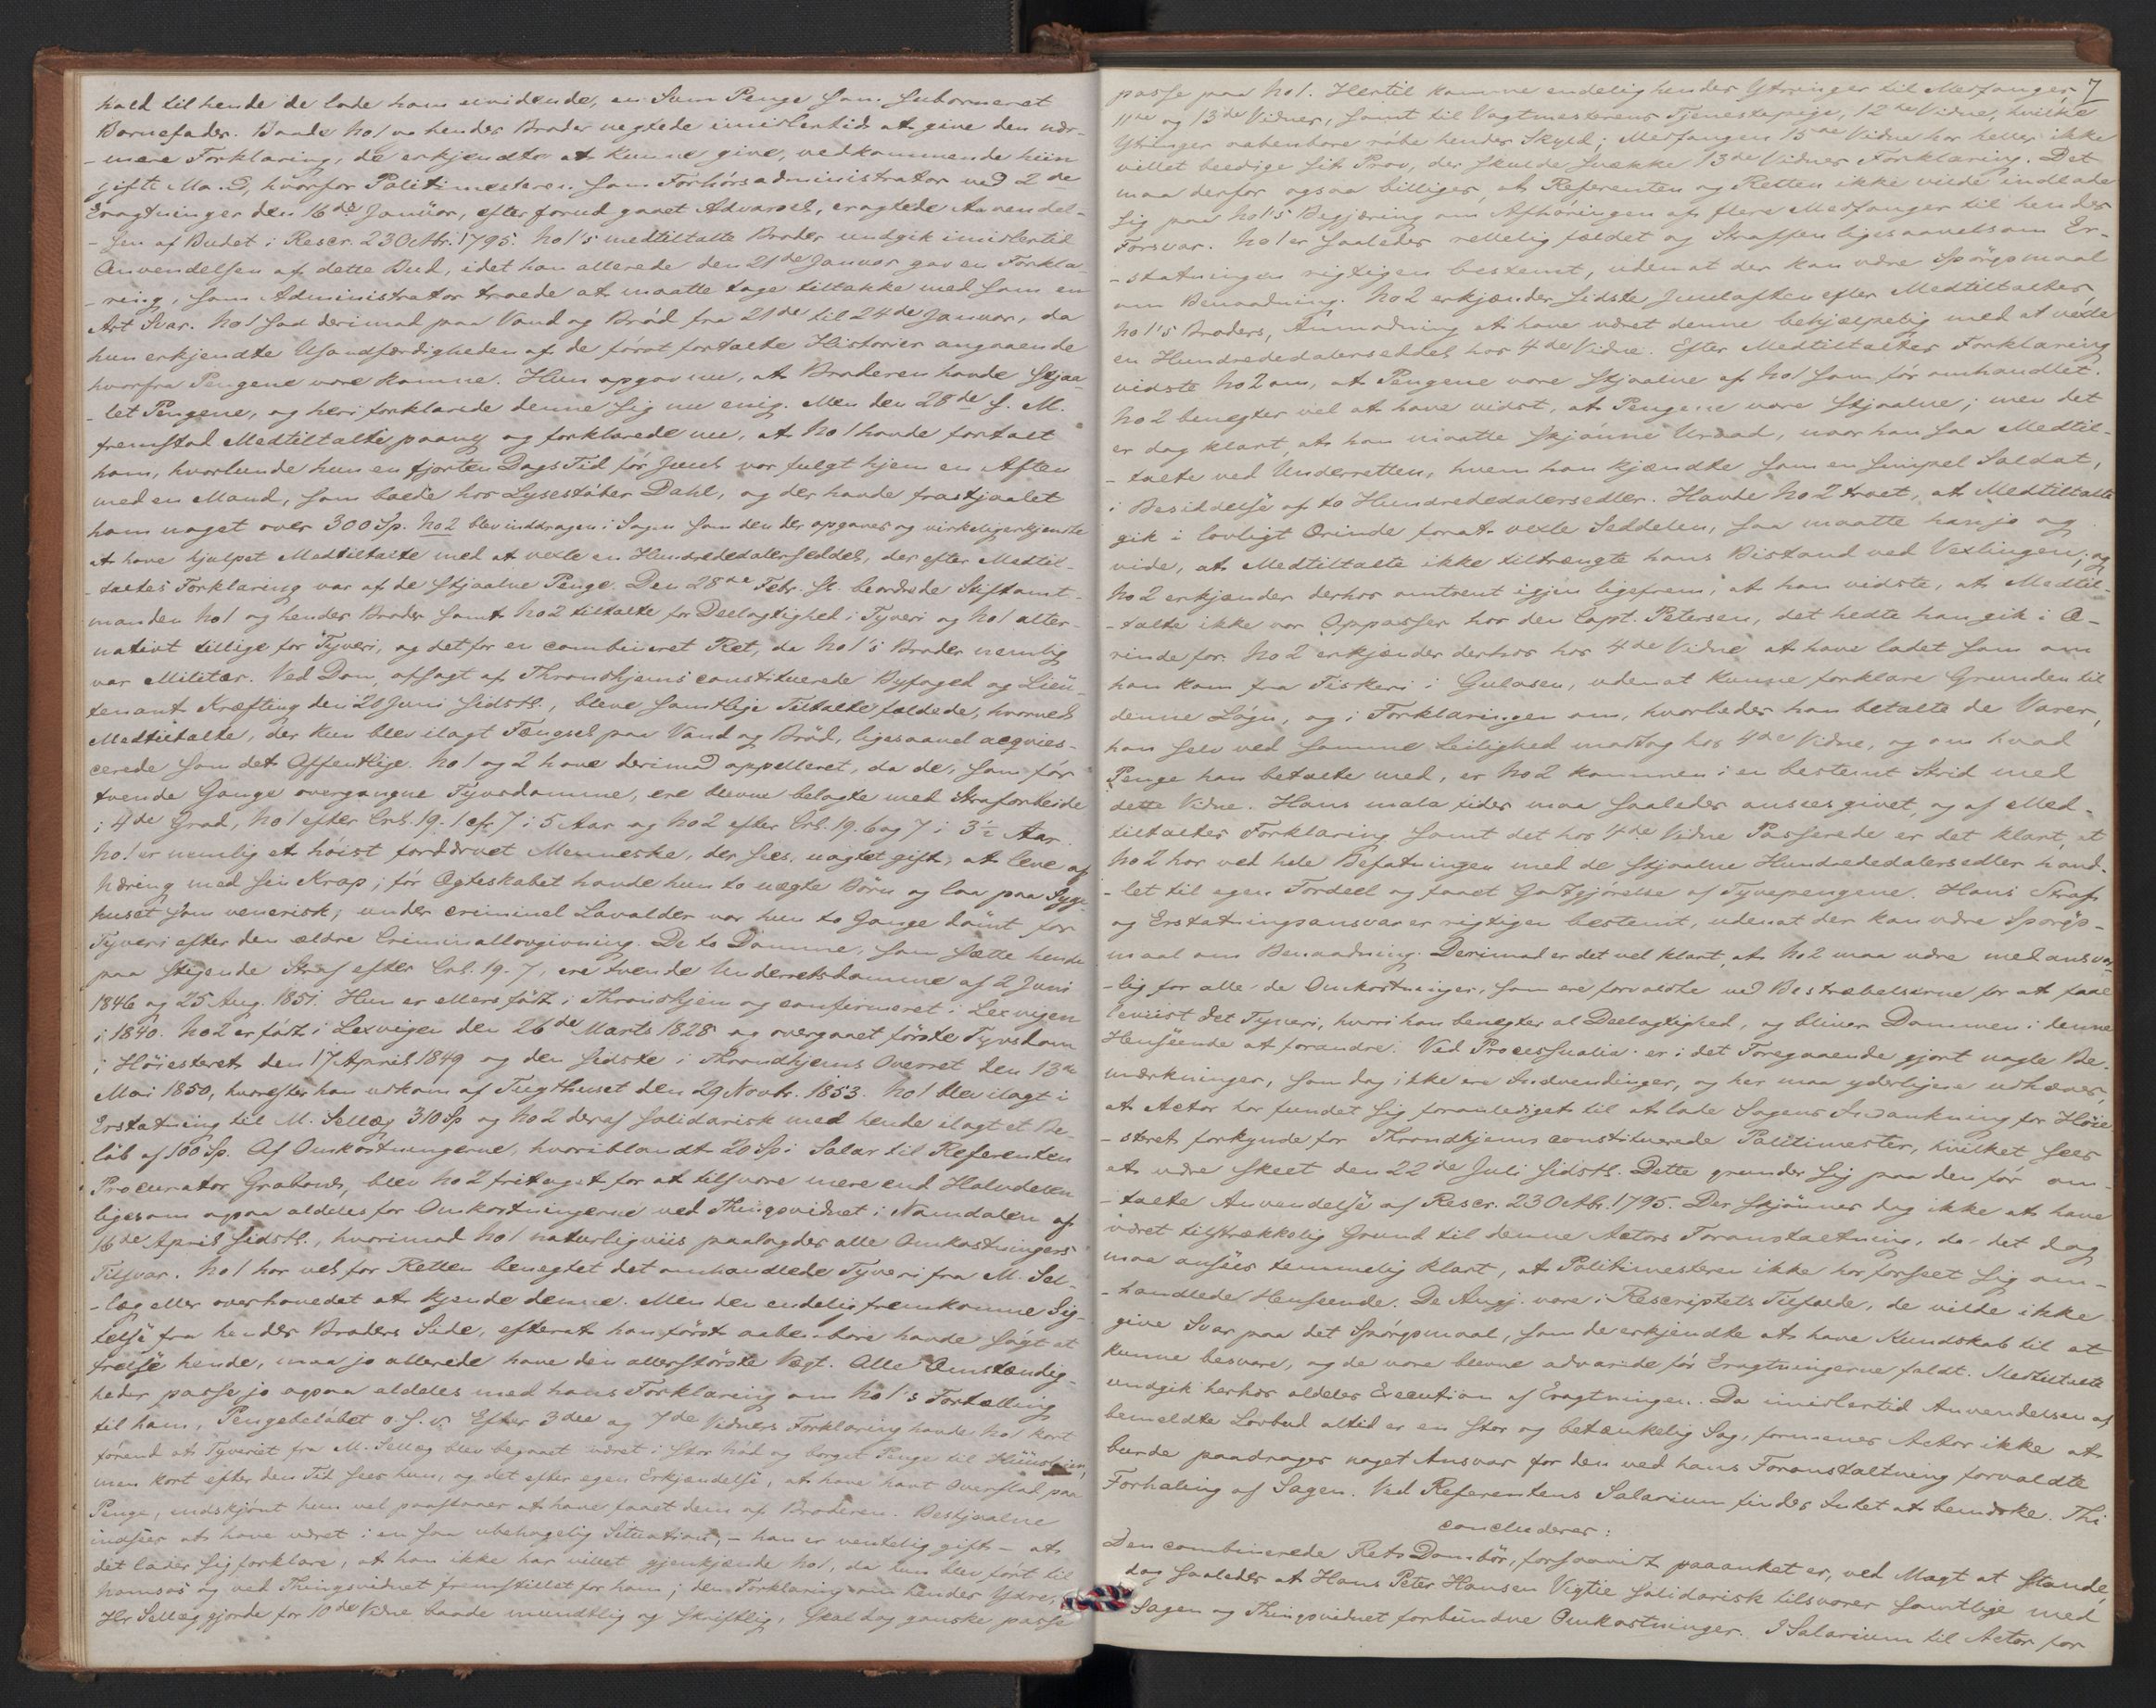 hold til hende de lade ham uvidende, en Sum Penge som suborneret
Barnefader. Baade No 1 og hendes Broder negtede imidlertid at give den nær-
-mere Forklaring, de erkjendte at kunne give, vedkommende hiin
gifte Ma..d, hvorfor Politimesteren som Forhørsadministrator ved 2de
Eragtninger den 16de Januar, efter forud gaaet Advarsel, eragtede Anvendel-
-sen af Budet i Rescr. 23 Octbr. 1795. No 1's medtiltalte Broder undgik imidlertid
Anvendelsen af dette Bud, idet han allerede den 21de Januar gav en Forkla-
-ring, som Administrator troede at maatte tage tiltakke med som en
Art Svar. No 1 sad derimod paa Vand og Brød fra 21de til 24de Januar, da
hun erkjendte Usandfærdigheden af de først fortalte Historier angaaende
hvorfra Pengene vare komne. Hun opgav nu, at Broderen havde stjaa-
-let Pengene, og heri forklarede denne sig nu enig. Men den 28de s. M.
fremstod Medtiltalte paany og forklarede nu, at No 1 havde fortalt
ham, hvorlunde hun en fjorten Dags Tid før Juul var fulgt hjem en Aften
med en Mand, som boede hos Lysestøber Dahl, og der havde frastjaalet
ham noget over 300 Sp. No 2 blev inddragen i Sagen som den der opgaves og virkelig erkjendte
at have hjulpet Medtiltalte med at vexle en Hundrededalerseddel, der efter Medtil-
-taltes Forklaring var af de stjaalne Penge. Den 28de Febr. sl. beordrede Stiftamt-
manden No 1 og hendes Broder samt No 2 tiltalte for Deelagtighed i Tyveri og No 1 alter-
nativt tillige for Tyveri, og det for en combineret Ret, da No 1's Broder nemlig
var Militær. Ved Dom, afsagt af Throndhjems constituerede Byfoged og Lieu-
tenant Kræfting den 20 Juni sidstl., bleve samtlige Tiltalte fældede, hvorved
Medtiltalte, der kun blev ilagt Fængsel paa Vand og Brød, ligesaavel acqvies-
cerede som det Offentlige. No 1 og 2 have derimod appelleret, da de, som før
tvende Gange overgangne Tyvsdomme, ere blevne belagte med Strafarbeide
i 4de Grad, No 1 efter Crl. 19. 1 cfr. 7 i 5 Aar og No 2 efter Crl. 19. 6 og 7 i 3½ Aar.
No 1 er nemlig et høist fordærvet Menneske, der sees, uagtet gift, at leve af
Næring med sin Krop; før Ægteskabet havde hun to uægte Børn og laa paa Syge-
huset som venerisk; under criminel Lavalder var hun to Gange dømt for
Tyveri efter den ældre Criminallovgivning. De to Domme, som sætte hende
paa stigende Straf efter Crl. 19. 7, ere tvende Underretsdomme af 2 Juni
1846 og 25 Aug. 1851. Hun er ellers født i Throndhjem og confirmeret i Lexvigen
i 1840. No 2 er født i Lexvigen den 26de Marts 1828 og overgaaet første Tyvsdom
i Høiesteret den 17 April 1849 og den sidste i Throndhjems Overret den 13de
Mai 1850, hvorefter han udkom af Tugthuset den 29 Novbr. 1853. No 1 blev ilagt i
Erstatning til M. Sellæg 310 Sp og No 2 deraf solidarisk med hende ilagt et Be-
løb af 100 Sp. Af Omkostningerne, hvoriblandt 20 Sp i Salær til Referenten
Procurator Grabow, blev No 2 fritaget for at tilsvare mere end Halvdelen
ligesom ogsaa aldeles for Omkostningerne ved Thingsvidnet i Namdalen af
16de April sidstl., hvorimod No 1 naturligviis paalagdes alle Omkostningers
Tilsvar. No 1 har vel for Retten benegtet det omhandlede Tyveri fra M. Sel-
-læg eller overhovedet at kjende denne. Men den endelig fremkomne Sig-
telse fra hendes Broders Side, efterat han først aabenbare havde søgt at
frelse hende, maa jo allerede have den allerstørste Vægt. Alle Omstændig-
heder passe jo ogsaa aldeles med hans Forklaring om No 1's Fortælling
til ham, Pengebeløbet o. s. v. Efter 3die og 7de Vidners Forklaring havde No 1 kort
førend at Tyveriet fra M. Sellæg blev begaaet været i stor Nød og borget Penge til Huusleien,
men kort efter den Tid sees hun, og det efter egen Erkjendelse, at have havt Overflod paa
Penge, endskjønt hun vel paastaaer at have faaet dem af Broderen. Bestjaalne
indsees at have været i en saa ubehagelig Situation, – han er ventelig gift – at
det lader sig forklare, at han ikke har villet gjenkjende No 1, da hun blev ført til
Namsos og ved Thingsvidnet fremstillet for ham; den Forklaring om hendes Ydre,
Hr Sellæg gjorde for 10de Vidne baade mundtlig og skriftlig, skal dog ganske passe
7
passe paa No 1. Hertil komme endelig hendes Yttringer til Medfanger,
11te og 13de Vidner, samt til Vagtmesterens Tjenestepige, 12te Vidne, hvilke
Yttringer aabenbare røbe hendes Skyld; Medfangen 15de Vidne har heller ikke
villet beedige sit Prov, der skulde svække 13de Vidnes Forklaring. Det
maa derfor ogsaa billiges, at Referenten og Retten ikke vilde indlade
sig paa No 1's Begjæring om Afhøringen af flere Medfanger til hendes
Forsvar. No 1 er saaledes rettelig fældet og Straffen ligesaavelsom Er-
-statningen rigtigen bestemt, uden at der kan være Spørgsmaal
om Benaadning. No 2 erkjender sidste Juulaften efter Medtiltaltes,
No 1's Broders, Anmodning at have været denne behjælpelig med at vexle
en Hundrededalerseddel hos 4de Vidne. Efter Medtiltaltes Forklaring
vidste No 2 om, at Pengene vare stjaalne af No 1 som før omhandlet.
No 2 benegter vel at have vidst, at Pengene vare stjaalne; men det
er dog klart, at han maatte skjønne Uraad, naar han saa Medtil-
-talte ved Underretten, hvem han kjendte som en simpel Soldat,
i Besiddelse af to Hundrededalersedler. Havde No 2 troet, at Medtiltalte
gik i lovligt Ærinde forat vexle Seddelen, saa maatte han jo og
vide, at Medtiltalte ikke tiltrængte hans Bistand ved Vexlingen; og
No 2 erkjender derhos omtrent igjen ligefrem, at han vidste, at Medtil-
-talte ikke var Oppasser hos den Capt. Petersen, det hedte han gik i Æ-
rinde for. No 2 erkjender derhos hos 4de Vidne at have ladet som om
han kom fra Fiskeri i Gulosen, uden at kunne forklare Grunden til
denne Løgn, og i Forklaringen om, hvorledes han betalte de Varer,
han selv ved samme Leilighed modtog hos 4de Vidne, og om hvad
Penge han betalte med, er No 2 kommen i en bestemt Strid med
dette Vidne. Hans mala fides maa saaledes ansees givet, og af Med-
tiltaltes Forklaring samt det hos 4de Vidne Passerede er det klart, at
No 2 har ved hele Befatningen med de stjaalne Hundrededalersedler hand-
-let til egen Fordeel og faaet Godtgjørelse af Tyvepengene. Hans Straf
og Erstatningsansvar er rigtigen bestemt, uden at der kan være Spørgs-
maal om Benaadning. Derimod er det vel klart, at No 2 maa være medansvar-
-lig for alle de Omkostninger, som ere forvoldte ved Bestræbelserne for at faae
beviist det Tyveri, hvori han benegter al Deelagtighed, og bliver Dommen i denne
Henseende at forandre. Ved Processualia er i det Foregaaende gjort nogle Be-
mærkninger, som dog ikke ere Indvendinger, og her maa yderligere udhæves,
at Actor har fundet sig foranlediget til at lade Sagens Indankning for Høie-
-steret forkynde for Throndhjems constituerede Politimester, hvilket sees
at være skeet den 22de Juli sidstl. Dette grunder sig paa den før om-
-talte Anvendelse af Rescr. 23 Octbr. 1795. Der skjønnes dog ikke at have
været tilstrækkelig Grund til denne Actors Foranstaltning, da det dog
maa ansees temmelig klart, at Politimesteren ikke har forseet sig i om-
-handlede Henseende. De Angj. vare i Rescriptets Tilfælde, de vilde ikke
give Svar paa det Spørgsmaal, som de erkjendte at have Kundskab til at
kunne besvare, og de vare blevne advarede før Eragtningerne faldt. Medtiltalte
undgik herhos aldeles Execution af Eragtningen. Da imidlertid Anvendelsen af
bemeldte Lovbud altid er en stor og betænkelig Sag, formenes Actor ikke at
burde paadrages noget Ansvar for den ved hans Foranstaltning forvoldte
Forhaling af Sagen. Ved Referentens Salarium findes Intet at bemærke. Thi
concluderes:
Den combinerede Rets Dom bør, forsaavidt paaanket er, ved Magt at stande,
dog saaledes at Hans Peter Hansen Vigtie solidarisk tilsvarer samtlige med
Sagen og Thingsvidnet forbundne Omkostninger. I Salarium til Actor for